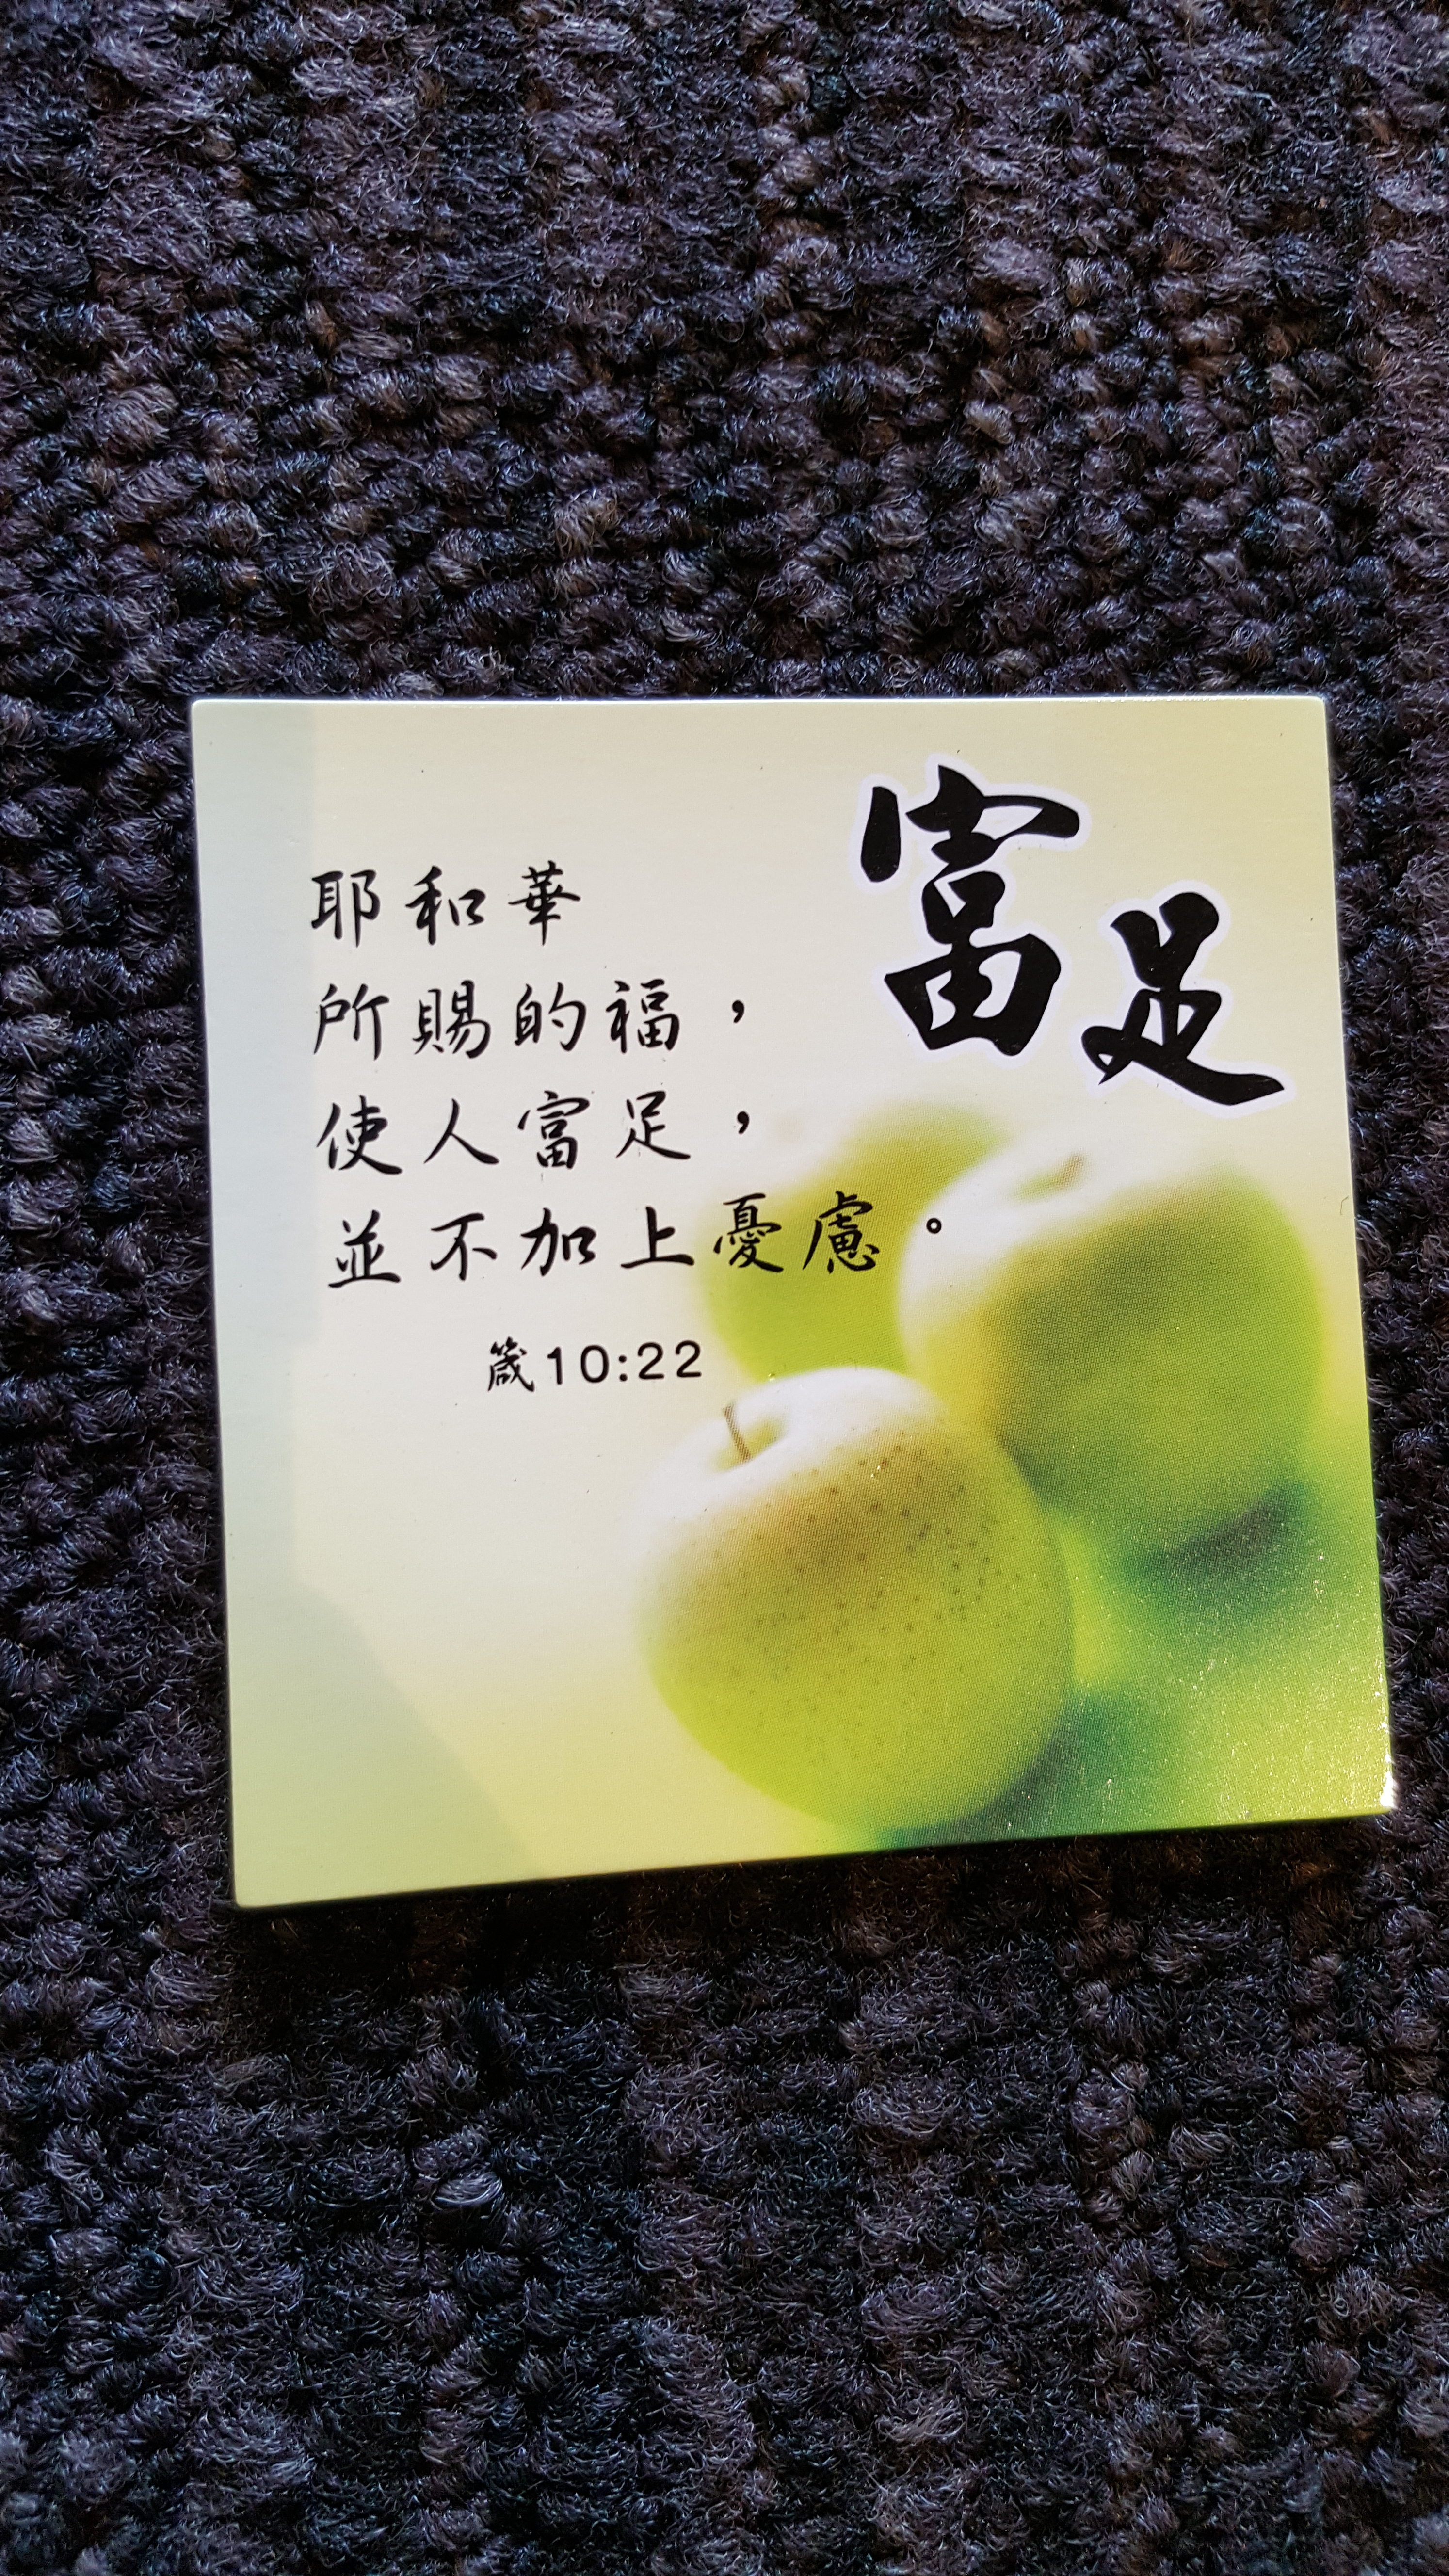 富足
耶和華
所賜的福，
使人富足，
並不加上憂慮。
箴10:22